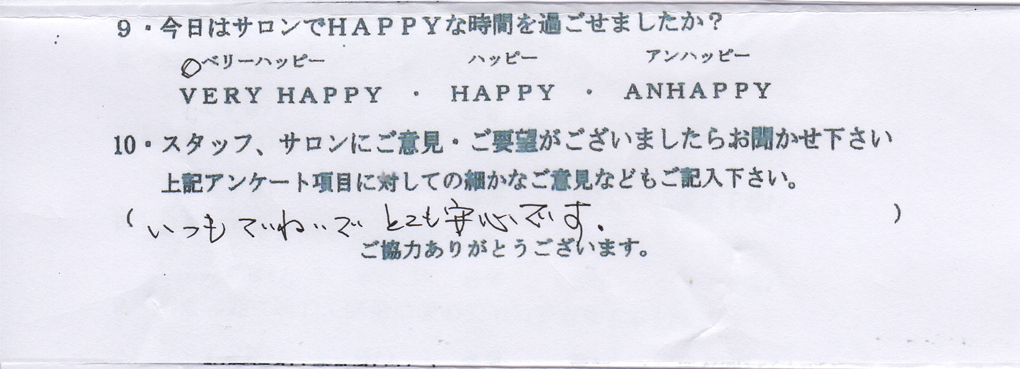 9・今日はサロンでHAPPYな時間を過ごせましたか？
ベリーハッピー ハッピー アンハッピー
VERY HAPPY ・ HAPPY ・ ANHAPPY
10・スタッフ、サロンにご意見・ご要望がございましたらお聞かせ下さい
上記アンケート項目に対しての細かなご意見などもご記入下さい。
(いつもていねいで とても安心です.)
ご協力ありがとうございます。